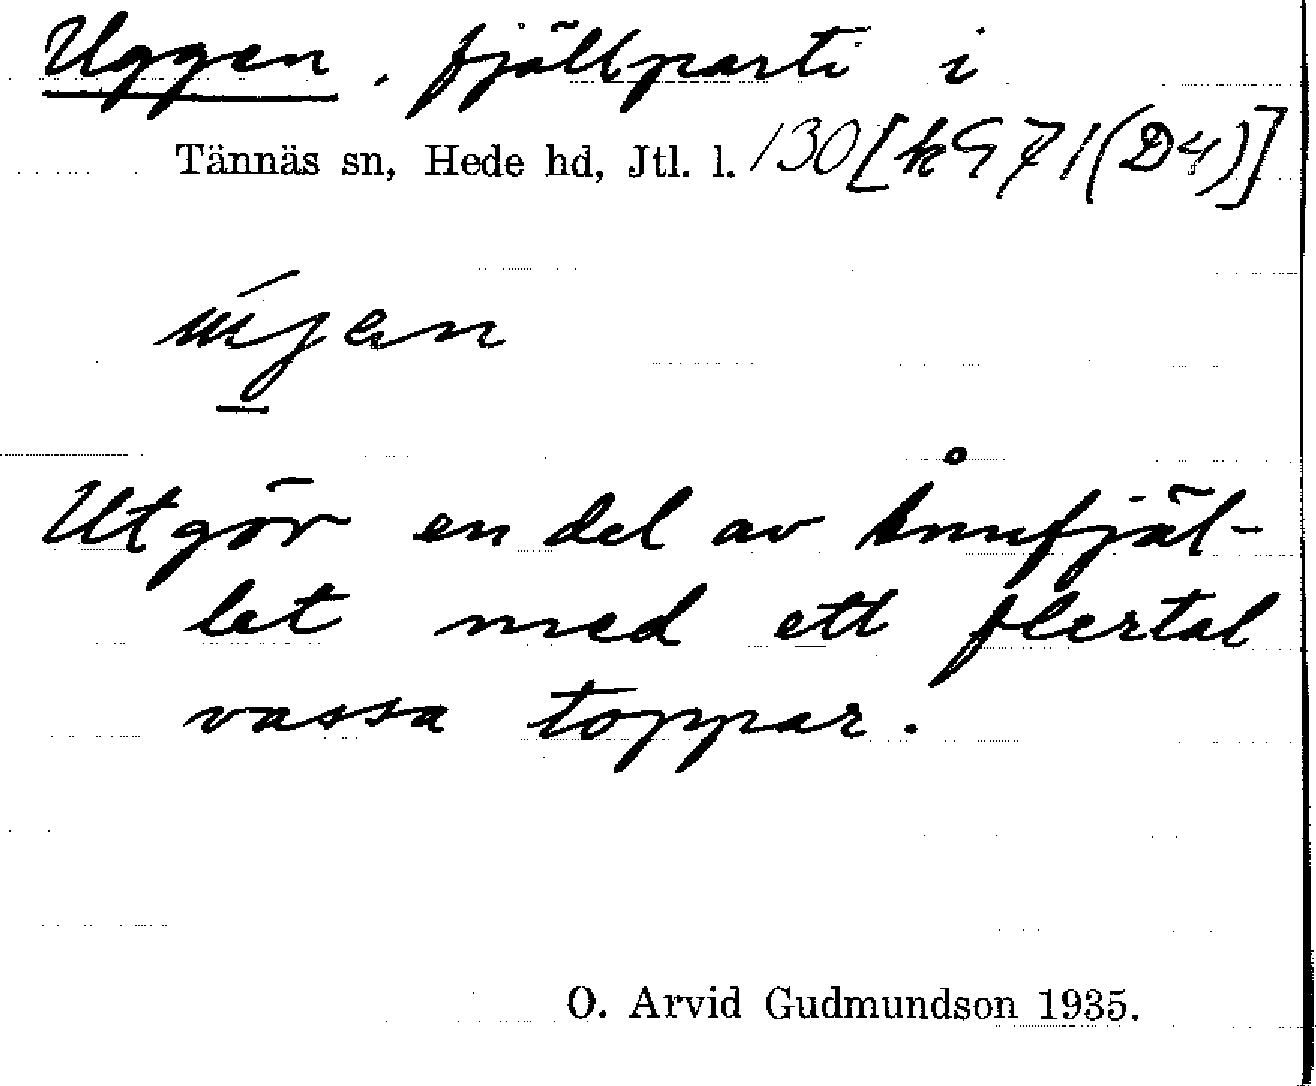 Uggen, fjällparti i
Tännäs sn, Hede hd, Jtl. l. 130 [k 971 (D4)]
Utgör en del av Ånnfjäl-
let med ett flertal
vassa toppar.
O. Arvid Gudmundson 1935.